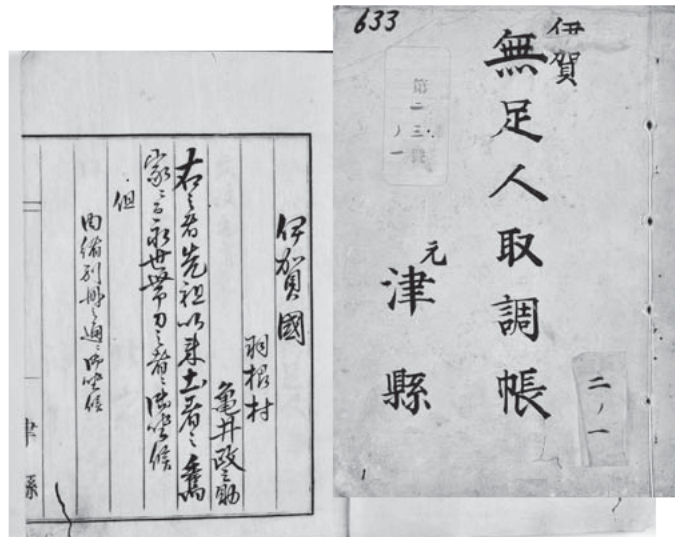 633
伊賀
無足人取調帳
元
津縣
第二三號
ノ一
二ノ一
1
伊賀國
羽根村
亀井政之助
右之者先祖以来土着之舊
家ニ而永世帯刀之者ニ御座候
但
由緒別冊之通ニ御座候
津縣